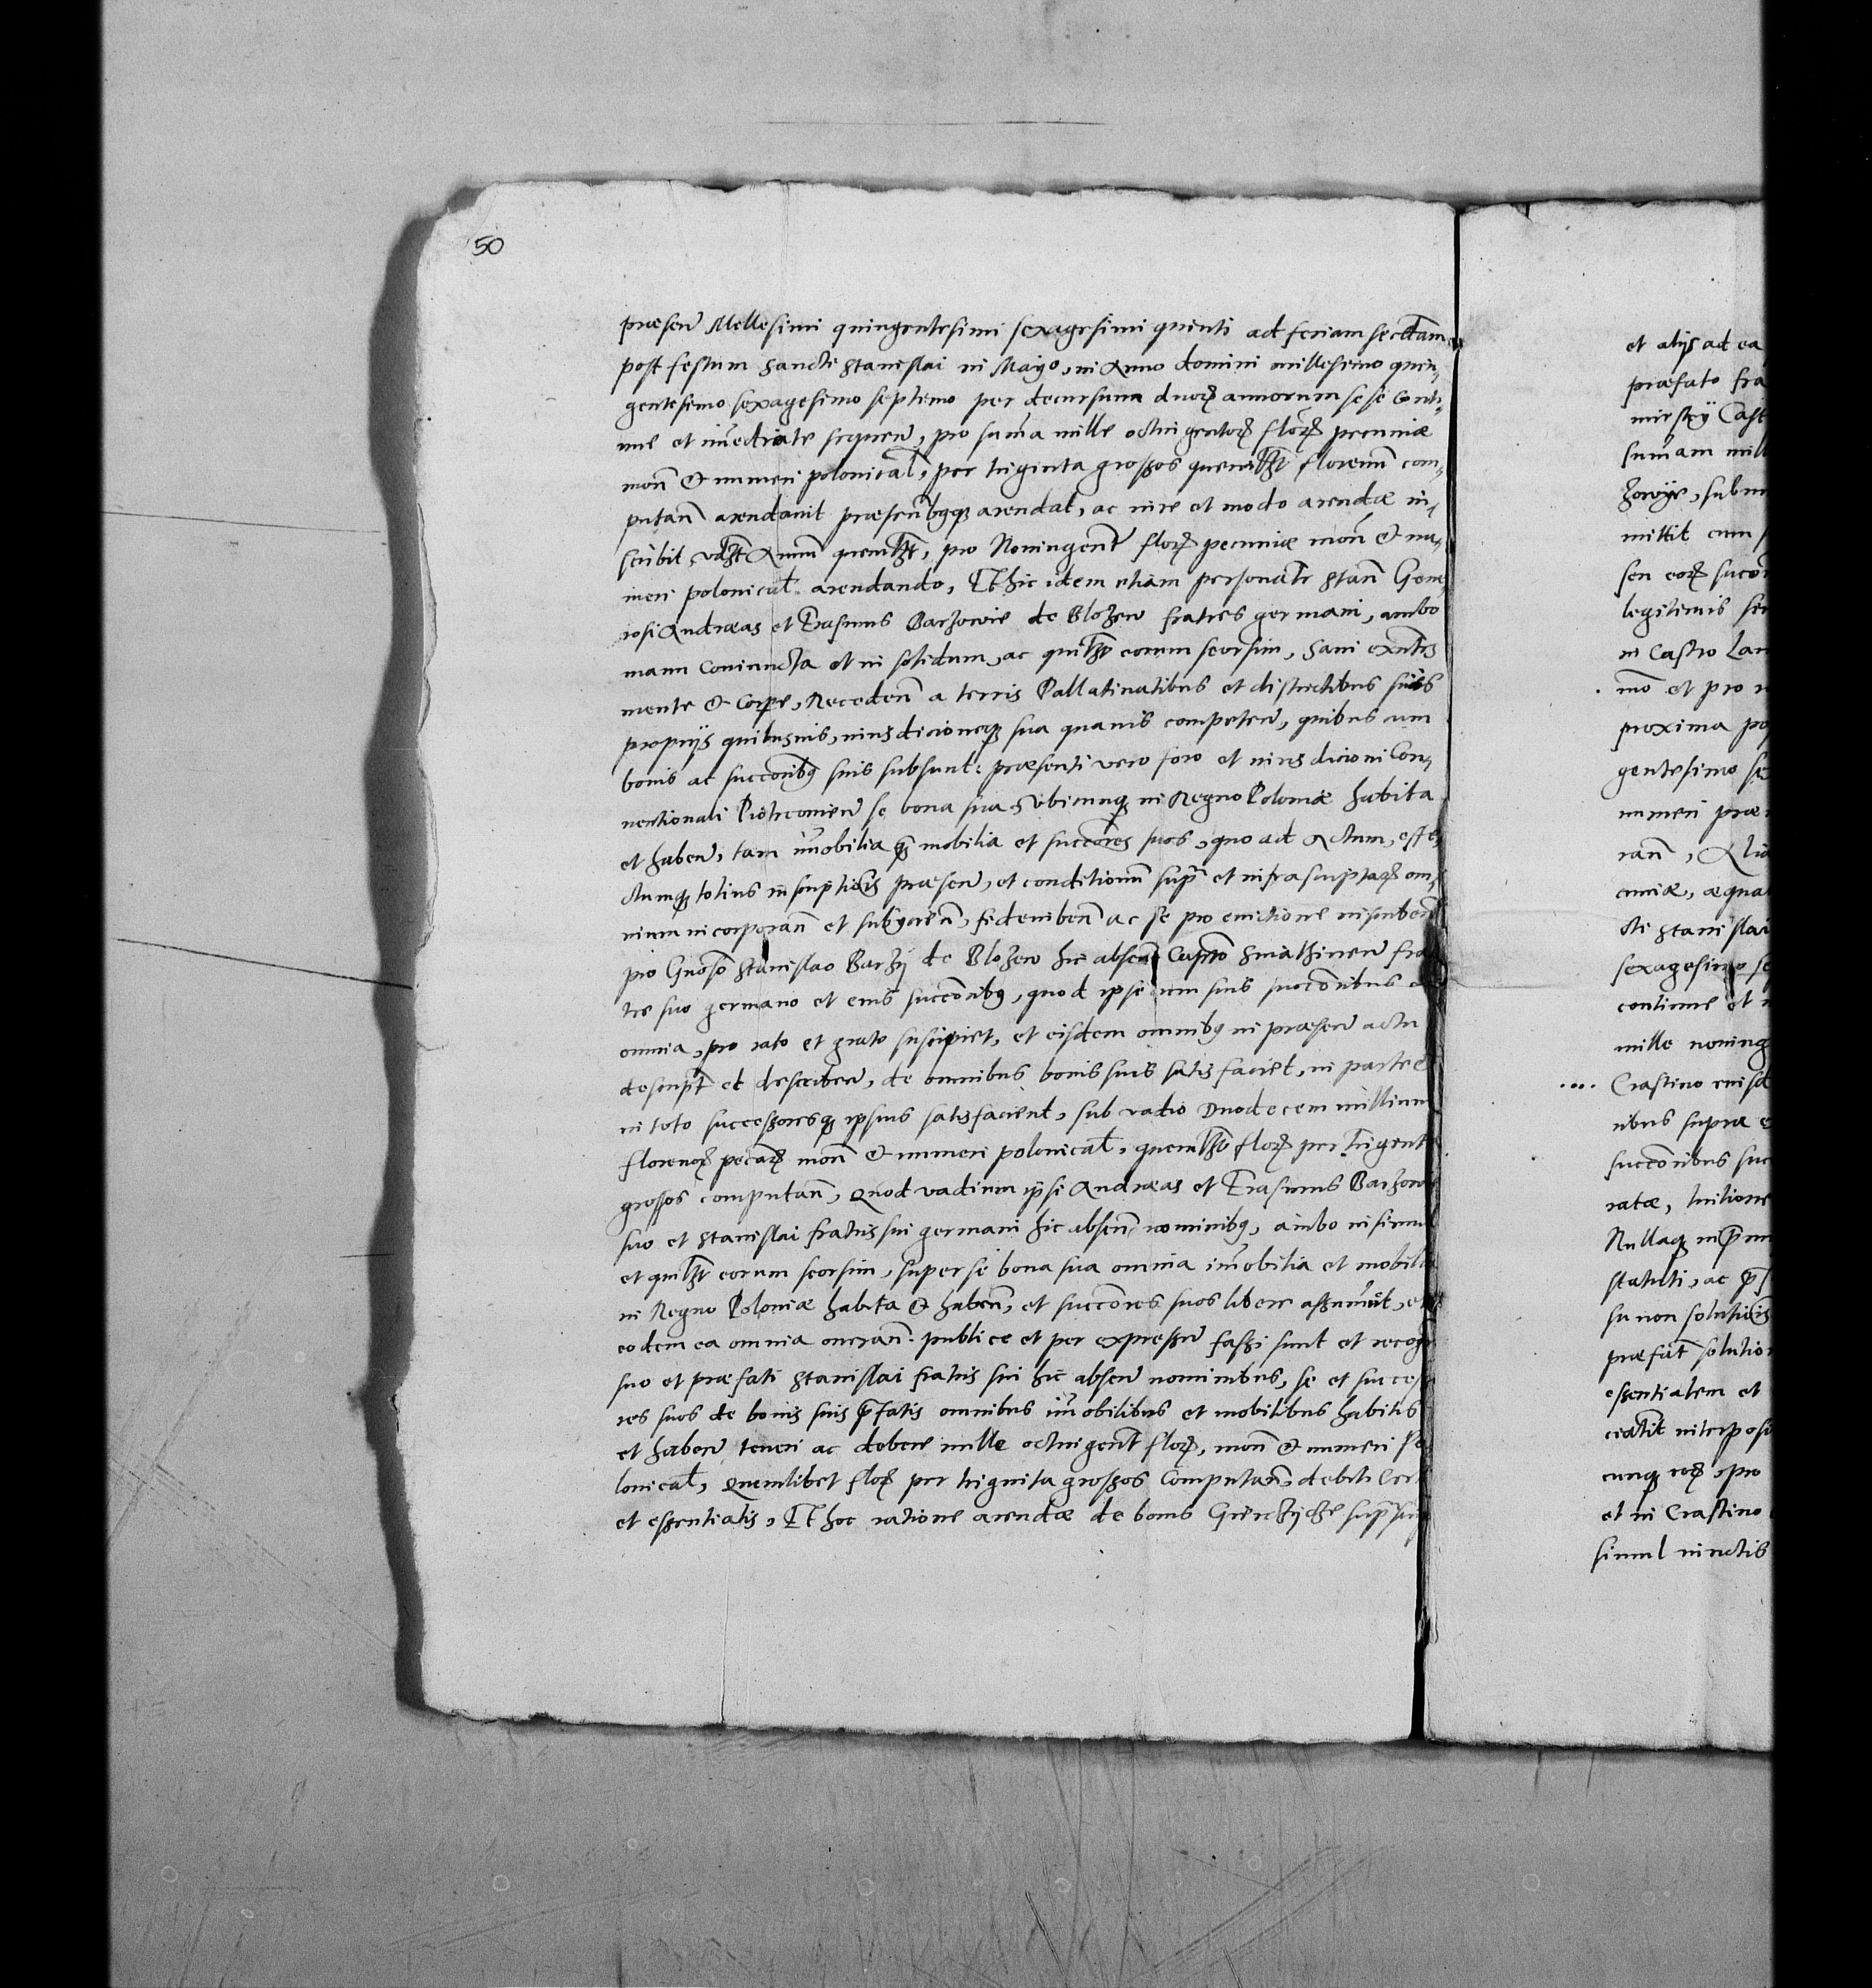 50
præsen Mellesimi quingentesimi sexagesimi quinti ad feriam secdam
post festum sancti Stanislai in Mayo, in Anno domini millesimo quin,
gentesimo sexagesimo septimo per decursum duoꝝ annorum sese Conti,
nue et imediate sequen, pro suma mille octuigentoꝝ floꝝ pecuniæ
mon & numeri polonical, per triginta grossos quemlibet florenum com,
putan arendavit præsentibusqꝫ arendat, ac iure et modo arendæ in,
scribit, Annum quemlibet, pro Noningent floꝝ pecuniæ mon & nu,
meri polonical arendando, Et hic idem etiam personalr stan Gene,
rosi Andræas et Erasmus Barzowie de Blozew fratres germani, ambo
manu coniuncta et in solidum, ac quilibet eorum seorsim, Sani exntes
mente & corpe, Receden a terris Pallatinatibus et districtibus suis
proprijs quibusuis, iurisdicioneqꝫ sua quauis competen, quibus cum
bonis ac succoribꝰ suis subsunt: præsenti vero foro et iurisdicioni Con,
uentionali Piotrcouien se bona sua, vbicunqꝫ in Regno Poloniæ habita
et haben, tam imobilia qꝫ mobilia et succores suos, quo ad Actum, effe,
ctumqꝫ totius inscriptiois præsen, et conditionum supra et infrascriptaꝝ om,
nium incorporan et subycien, fideiuben ac se pro euictione inscriben
pro Gnoso Stanislao Barzy de Blozew hic absen Capto Sniathinen fra
tre suo germano et eius succoribꝰ, quod ipse cum suis succoribus
omnia, pro rato et grato suscipiet, et eisdem omnibꝰ in præsen actu
descript et describen, de omnibus bonis suis satisfaciet, in parte et
in toto successoresqꝫ ipsius satisfacient, sub vadio Duodecem millium
florenoꝝ pecuniaꝝ mon & numeri polonical, quemlibet floꝝ per trigent
grossos computan, Quod vadium ipsi Andræas et Erasmus Barzow
suo et Stanislai fratris sui germani hic absen nominibꝰ, ambo insimul
et quilibet eorum seorsim, super se bona sua omnia imobilia et mobilia
in Regno Poloniæ habita & haben, et succores suos libere assumut, et
eodem ea omnia oneran. publice et per expressum fassi sunt et recogn
suo et præfati Stanislai fratris sui hic absen nominibus, se et success
res suos de bonis suis pfatis omnibus imobilibus et mobilibus habitis
et haben teneri ac debere mille octuigent floꝝ, mon & numeri Po
lonical, Quemlibet floꝝ per triginta grossos Computan, debiti Cert
et essentialis, Et hoc ratione arendæ de bonis
et alijs ad ea
præfato fra
mirskij Cast
sumam mill
mittit cum
seu eoꝝ succor
legitimis
in Castro Lan
mo et pro
proxima po
gentesimo
numeri præ
ran, Alia
cuniæ, æqua
cti Stanislai
sexagesimo se
continue et
mille noning
.... Crastino eiusd
nibus supra
succoribus suc
ratæ, tuitione
Nullaqꝫ
statuti, ac
su non solutiois
præfat solutio
essentialem et
interposi
cunqꝫ eoꝝ, pro
et in Crastino
simul iunctis